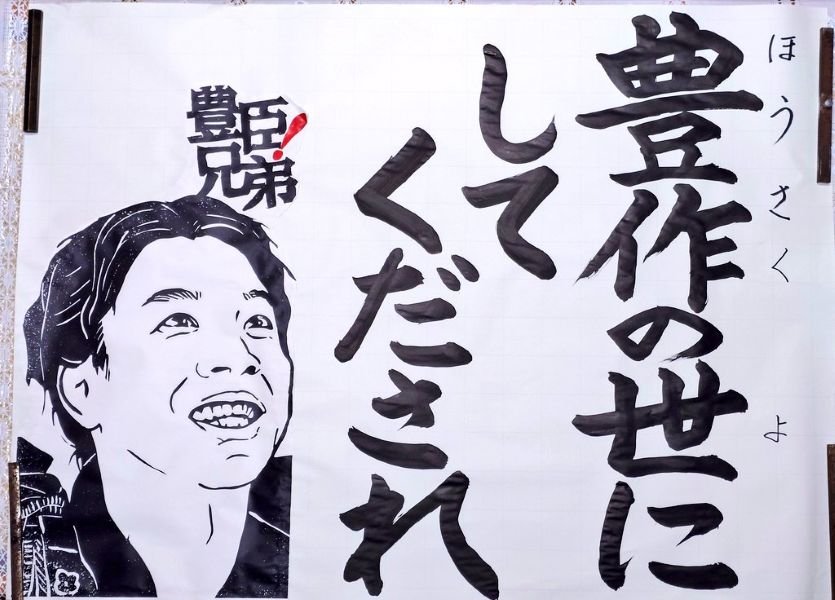 ほうさく よ
豊作の世に
して
くだされ
豊臣
兄弟!